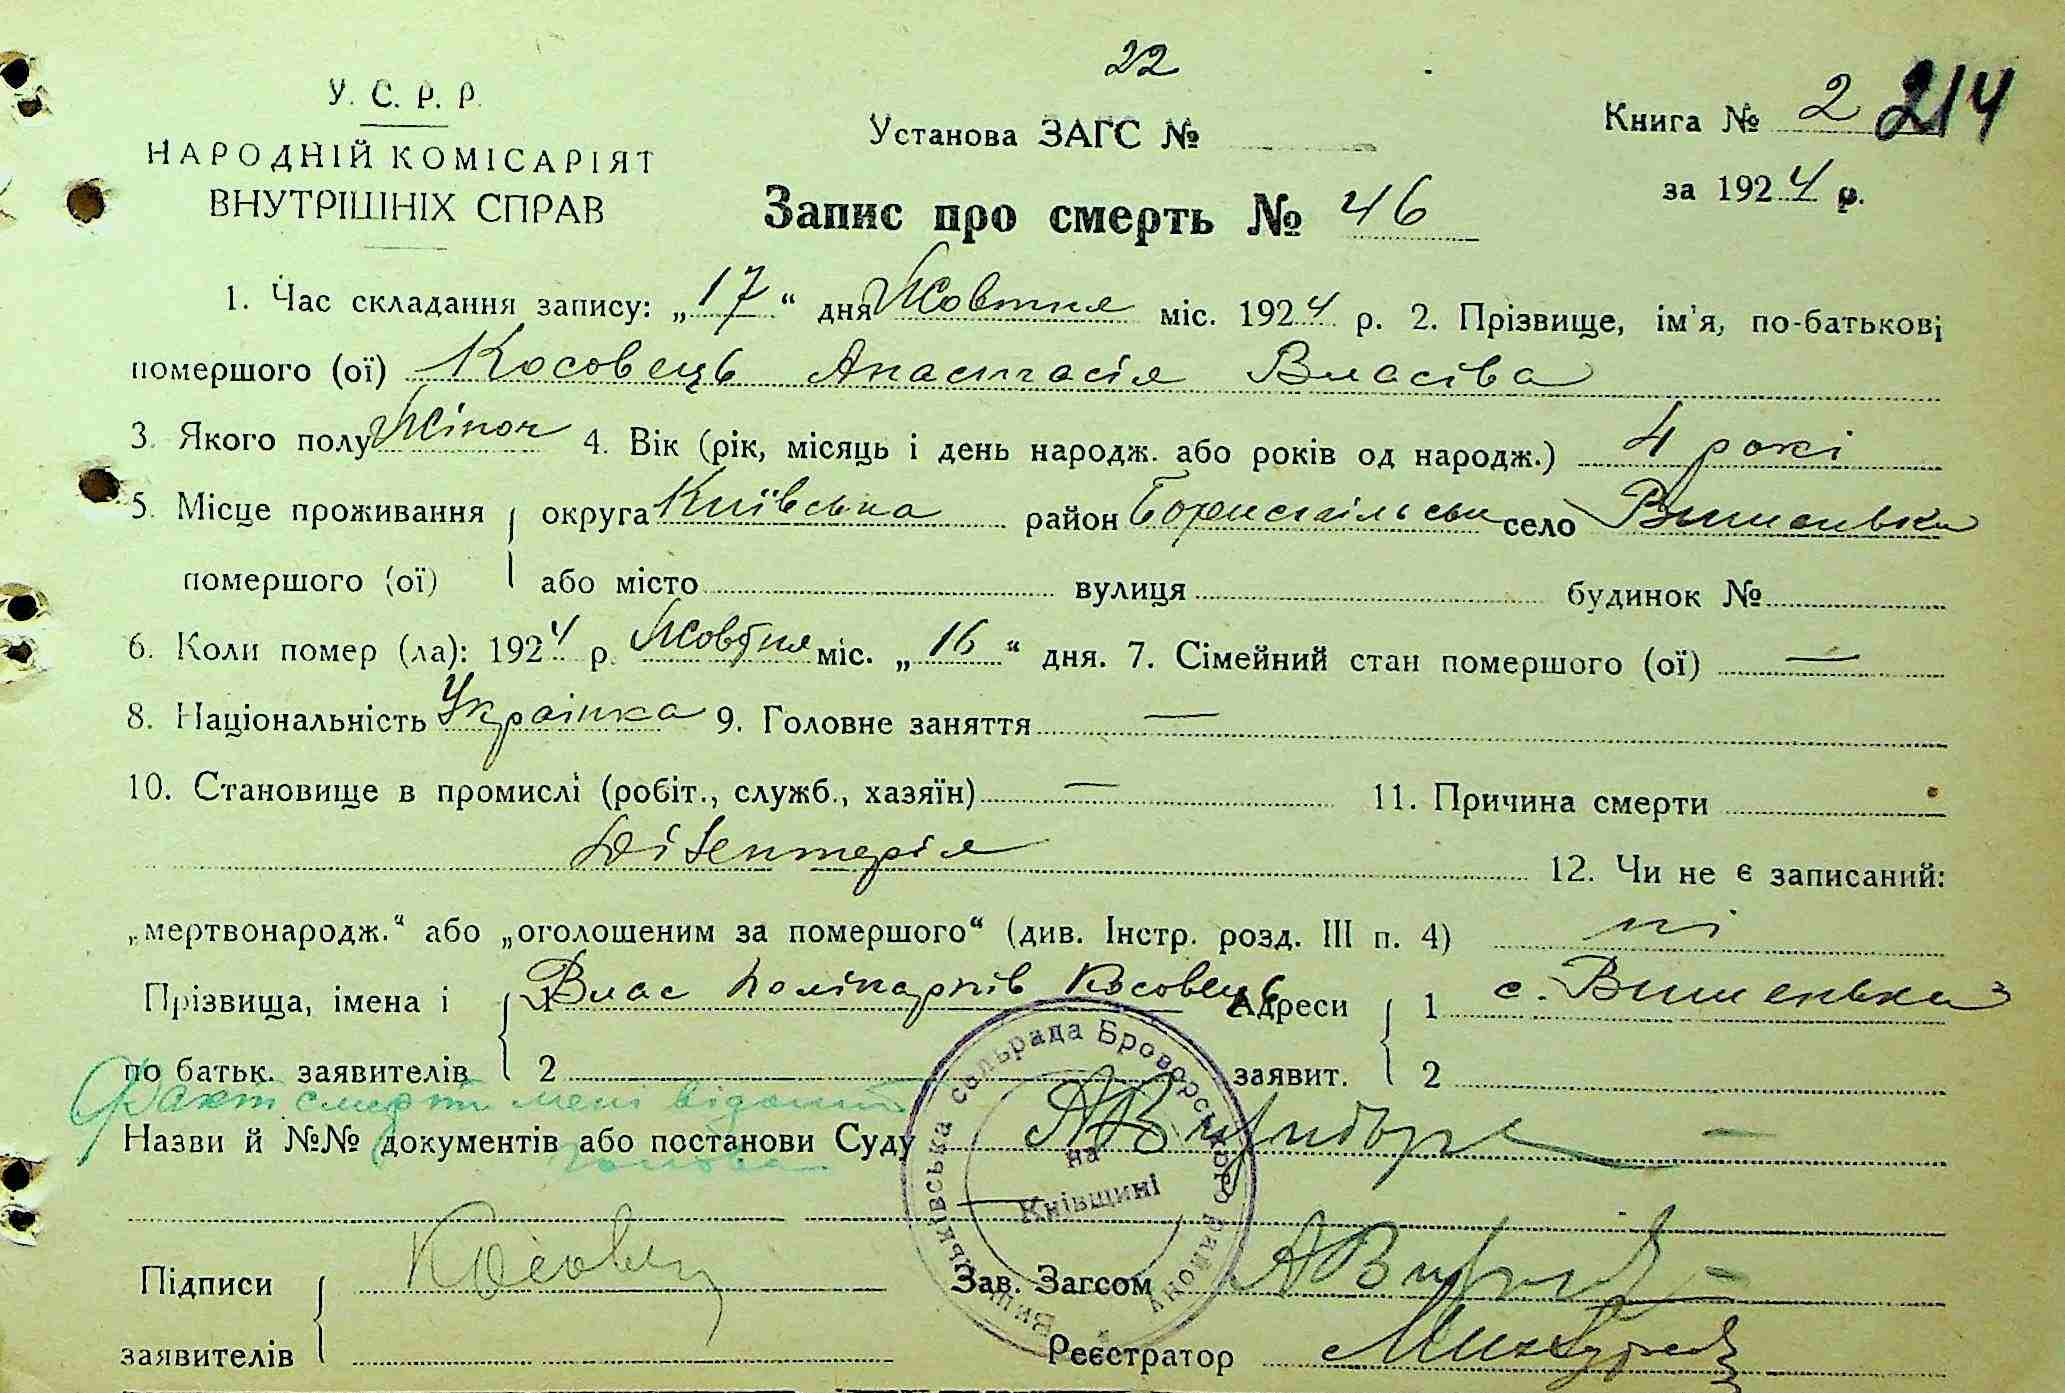 22
У. С. Р. Р.
НАРОДНІЙ КОМІСАРІЯТ
ВНУТРІШНІХ СПРАВ
Установа ЗАГС №
Книга № 2 214
за 1924 р.
Запис про смерть № 46
1. Час складання запису: „17“ дня Жовтня міс. 1924 р. 2. Прізвище, ім'я, по-батькові
помершого (ої) Косовець Анастасія Власіва
3. Якого полу Жіноч 4. Вік (рік, місяць і день народж. або років од народж.) 4 рокі
5. Місце проживання округа Київська район Бориспільськ село Вишенька
помершого (ої) або місто вулиця будинок №
6. Коли помер (ла): 1924 р. Жовтня міс. „16“ дня. 7. Сімейний стан помершого (ої) —
8. Національність Українка 9. Головне заняття —
10. Становище в промислі (робіт., служб., хазяїн) — 11. Причина смерти
Дізентерія
12. Чи не є записаний:
„мертвонародж.“ або „оголошеним за помершого“ (див. Інстр. розд. III п. 4) ні
Прізвища, імена і 1 Влас Полікарпів Косовець Адреси 1 с. Вишенька
по батьк. заявителів 2 заявит. 2
Факт смерти мені відомий
Назви й №№ документів або постанови Суду
голова
Вишеньківська сельрада Броворського району
на Київщині
Підписи Косовец Зав. Загсом
заявителів Реєстратор